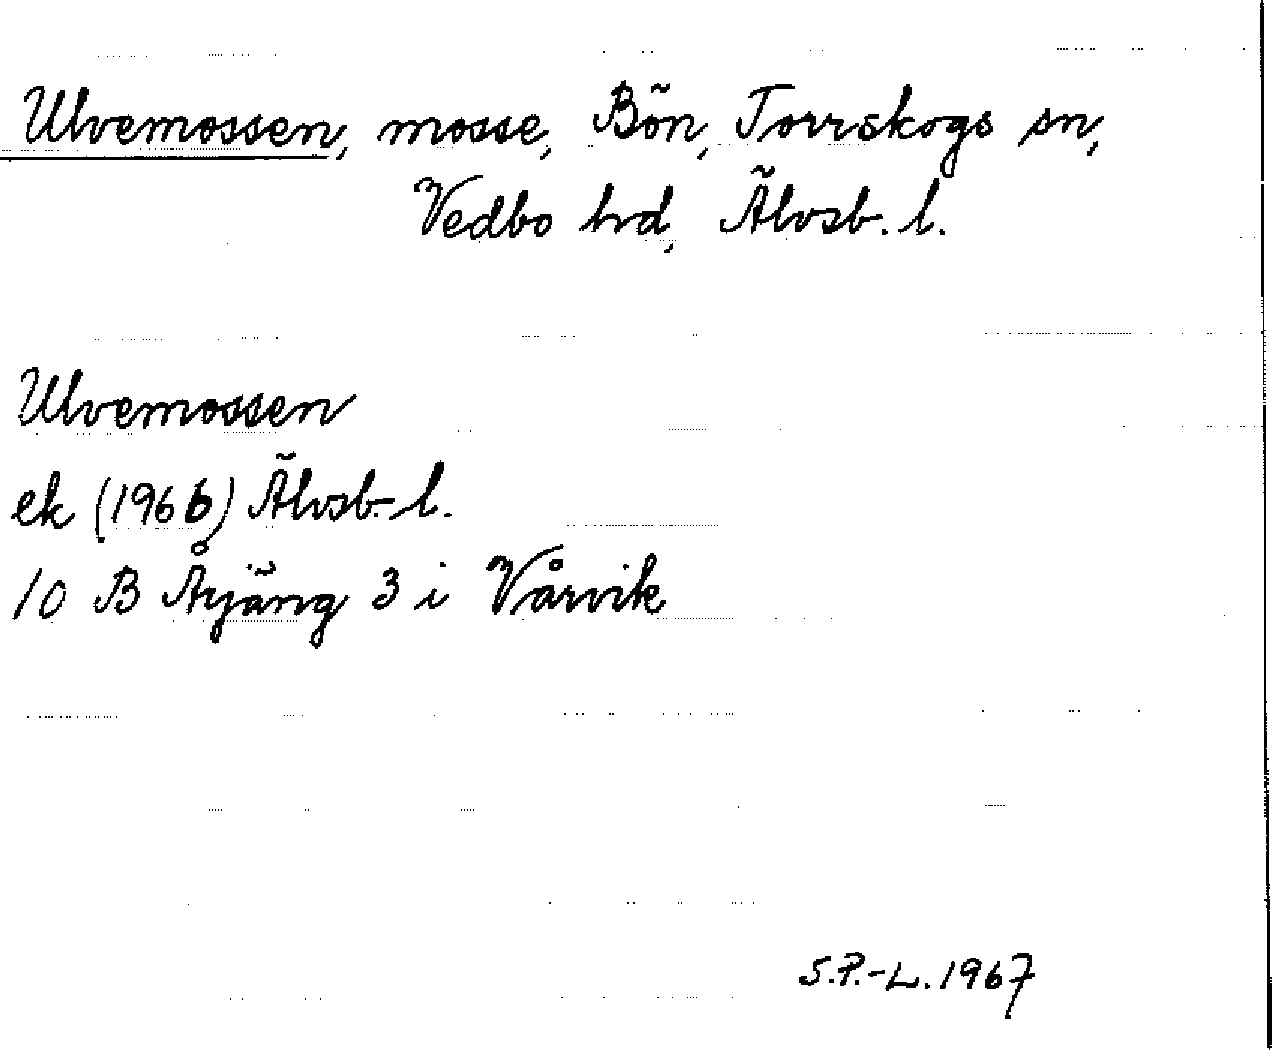 Ulvemossen, mosse, Bön, Torrskogs sn,
Vedbo hd, Älvsb. l.
Ulvemossen
ek (1966) Älvsb. l.
10 B Årjäng 3 i Vårvik
S.P.-L. 1967